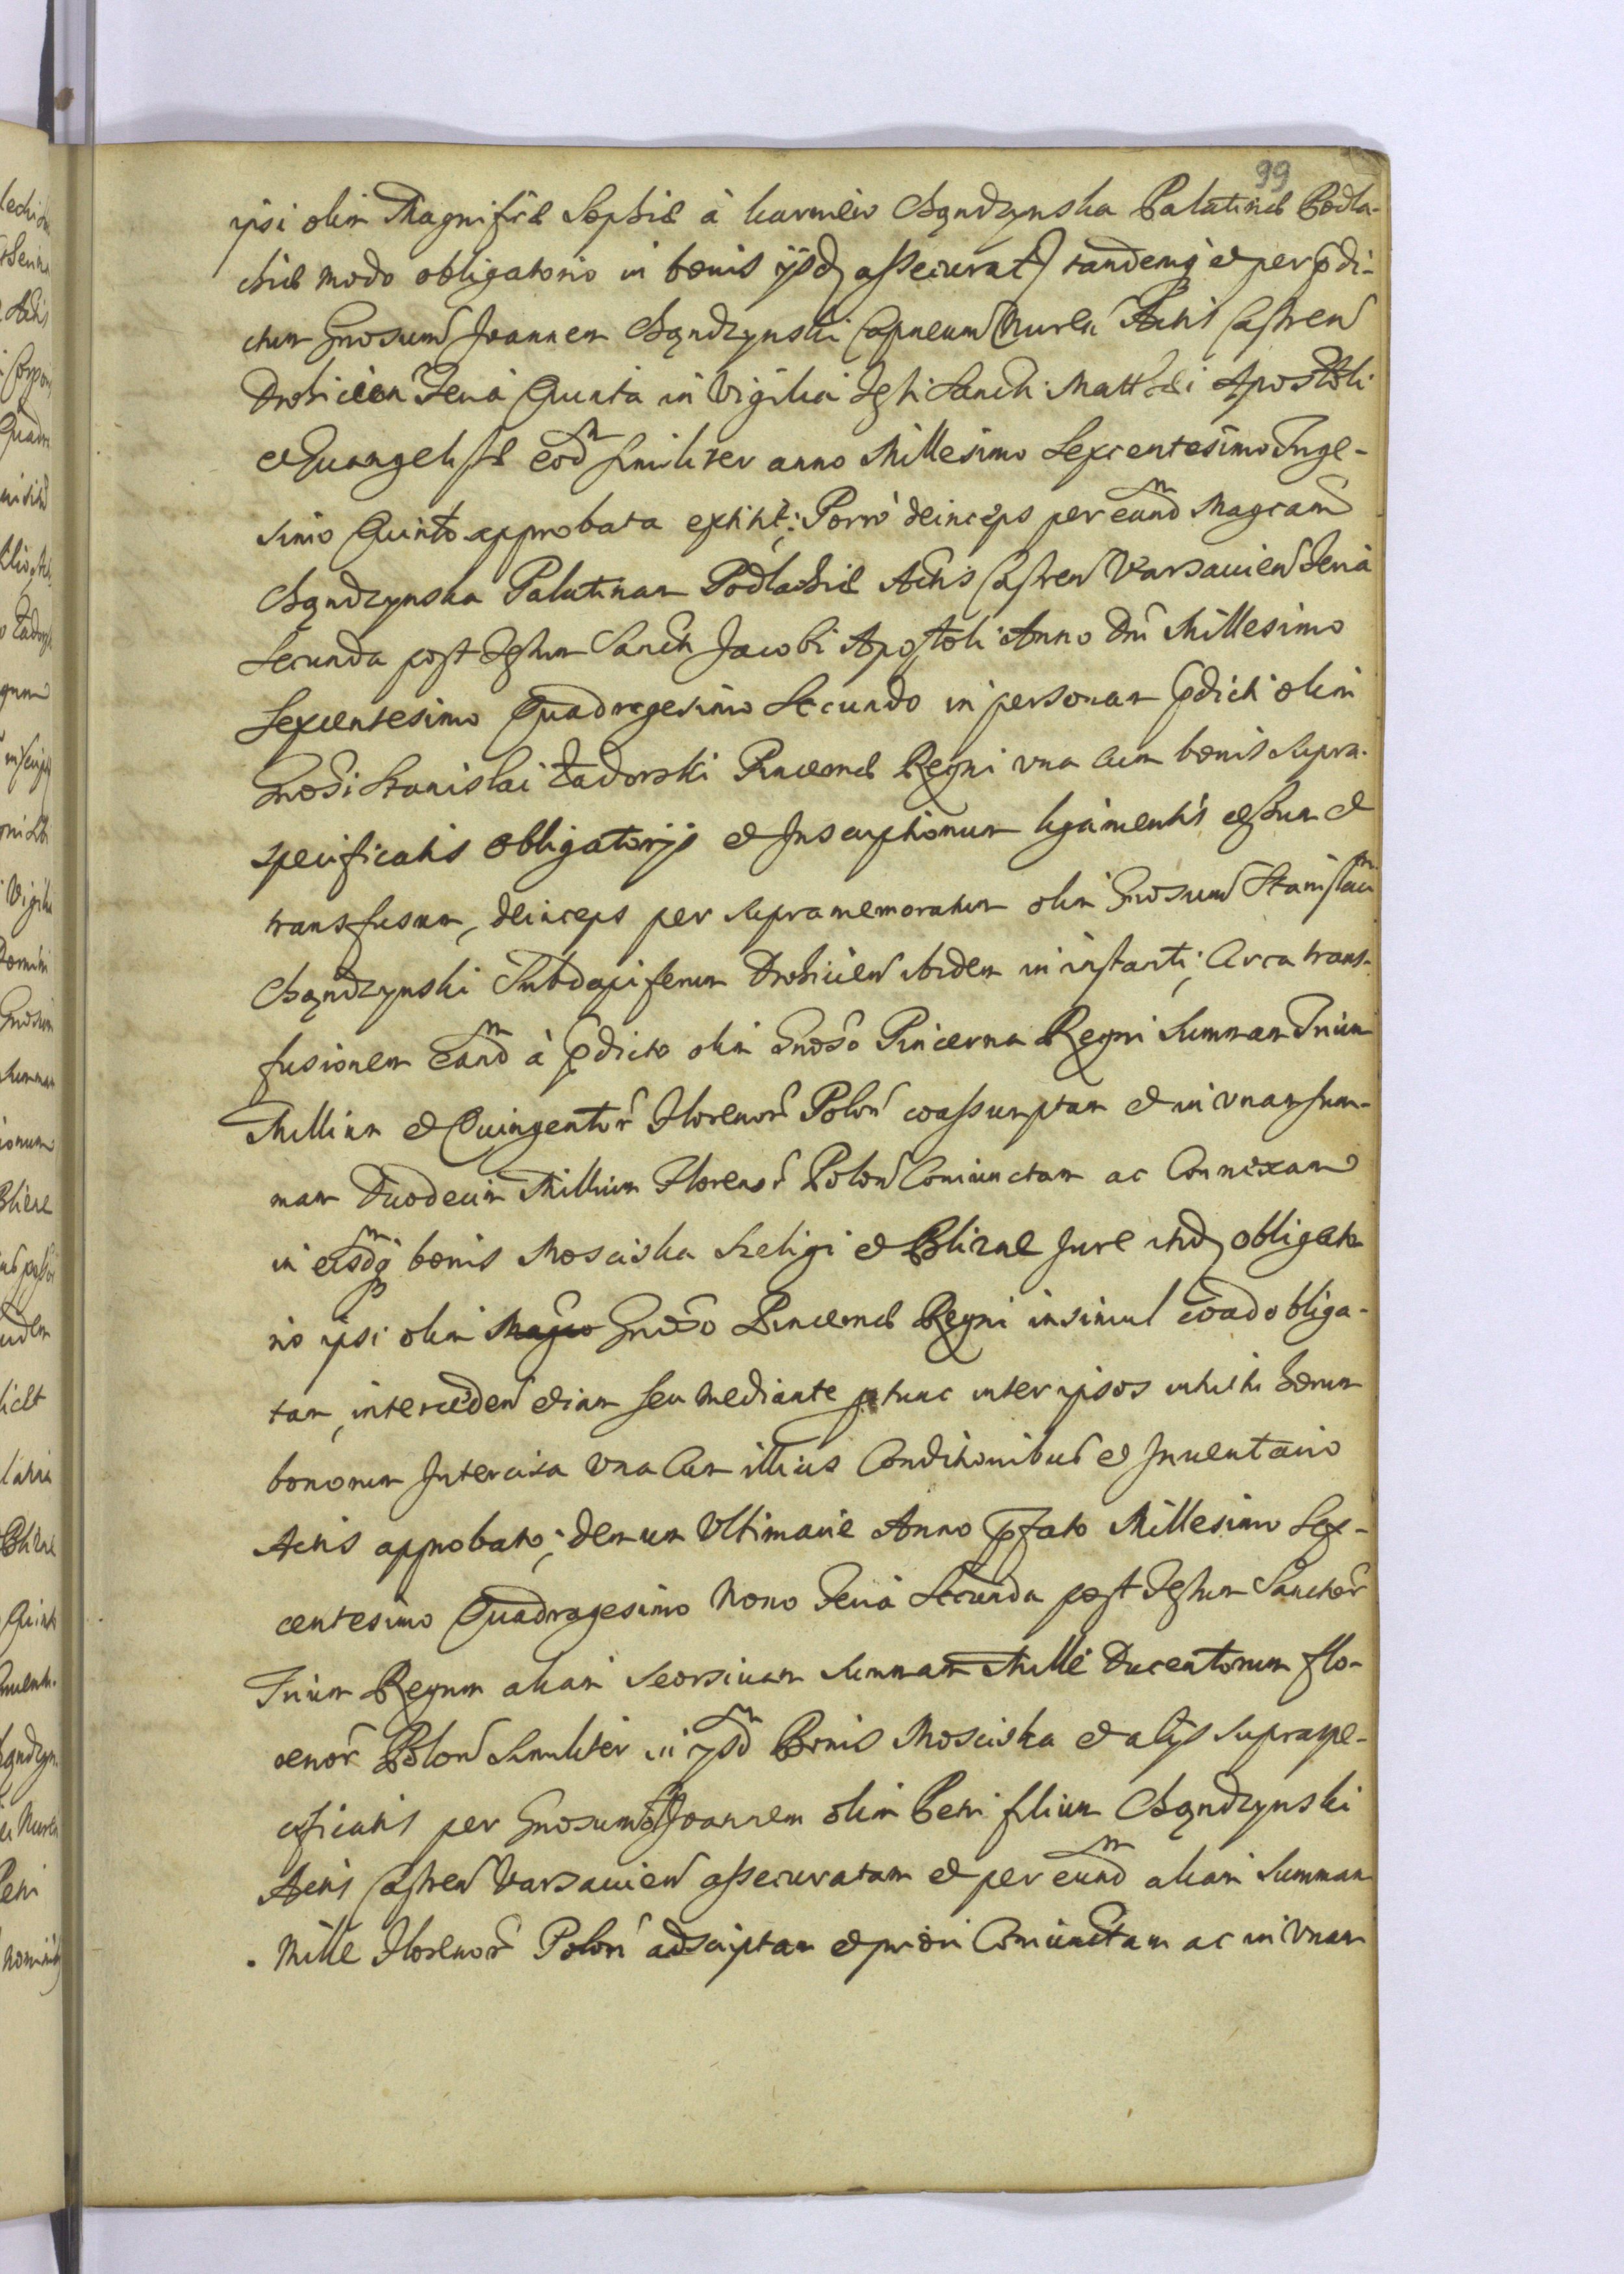 99
ipsi olim Magnificæ Sophiæ à Karniew Chądzynska Palatinæ Podla-
chiæ modo obligatorio in bonis ijsdem assecurat tandemq et per pdi-
ctum Gnosum Joannem Chądzynski Capneum Nuren Actis Castren
Drohicien Feria Quarta in Vigilia Festi Sancti Matthæi Apostoli
et Euangelistæ eod similiter anno Millesimo Sexcentesimo Trige-
simo Quinto approbata extitit; Porrò deinceps per eand Magcam
Chądzynska Palatinam Podlachiæ Actis Castren Varsauien Feria
Secunda post Festum Sancti Jacobi Apostoli Anno Dni Millesimo
Sexcentesimo Quadragesimo Secundo in personam pdicti olim
Gnosi Stanislai Zadorski Pincernæ Regni vna cum bonis supra-
specificatis obligatorijs et Inscriptionum ligamentis cessum et
transfusum, deinceps per supramemoratum olim Gnosum Stanislaum
Chądzynski Subdapiferum Drohicien ibidem in instanti; Circa trans-
fusionem eand à pdicto olim Gnoso Pincerna Regni Summam Trium
Millium et Quingentor Florenor Polon coassumptam et in vnam sum-
mam Duodecim Millium Florenor Polon Coniunctam ac Connexam
in eisdq bonis Mosciska Szeligi et Blizne Jure itid obligato-
rio ipsi olim Magco Gnoso Pincernæ Regni insimul coadobliga-
tam, interceden etiam seu mediante tunc inter ipsos inhiti horum
bonorum Intercisa vna Cum illius Conditionibus et Inuentario
Actis approbato; demum Vltimarie Anno pfato Millesimo Sex-
centesimo Quadragesimo Nono Feria Secunda post Festum Sanctor
Trium Regum aliam seorsiuam Summam Mille Ducentorum flo-
renor Polon similiter in ijsd Bonis Mosciska et alijs supraspe-
cificatis per Gnosum Joannem olim Petri filium Chądzynski
Actis Castren Varsauien assecuratam et per eund aliam Summam
Mille Florenor Polon adscriptam et priori Coniunctam ac in Vnam